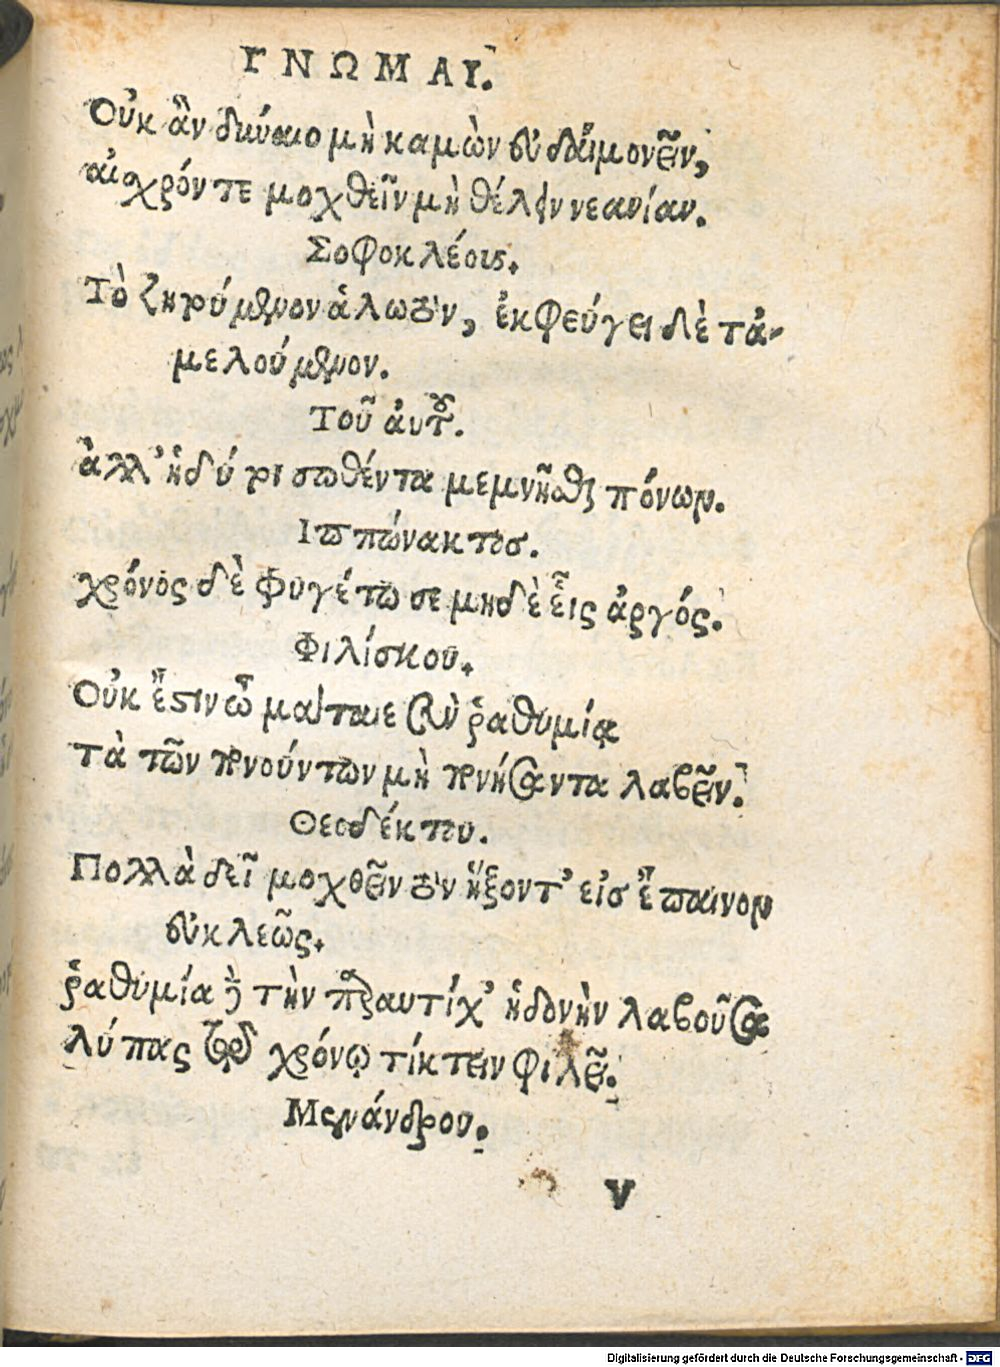 ΓΝΩΜΑΙ.
Οὐκ ἂν δύναιο μὴ καμὼν εὐδαιμονεῖν,
αἰσχρόν τε μοχθεῖν μὴ θέλειν νεανίαν.
Σοφοκλέους.
Τὸ ζητούμενον ἁλωτὸν, ἐκφεύγει δὲ τἀ-
μελούμενον.
Τοῦ ἀυτοῦ.
ἀλλ' ἡδύ τι σωθέντα μεμνῆσθαι πόνων.
Ιππώνακτοσ.
χρόνος δὲ φυγέτω σε μηδὲ εἷις ἀργός.
Φιλίσκου.
Οὐκ ἔστιν ὦ μάταιε σὺν ῥαθυμίᾳ
τὰ τῶν πονούντων μὴ πονήσαντα λαβεῖν.
Θεοδέκτου.
Πολλὰ δεῖ μοχθεῖν τὸν ἥξοντ' εἰσ ἔπαινον
εὐκλεῶς.
ῥαθυμία δὲ τὴν παραυτίχ' ἡδονὴν λαβοῦσα
λύπας χρόνῳ τίκτειν φιλεῖ.
Μενάνδρου.
v
Digitalisierung gefördert durch die Deutsche Forschungsgemeinschaft - DFG